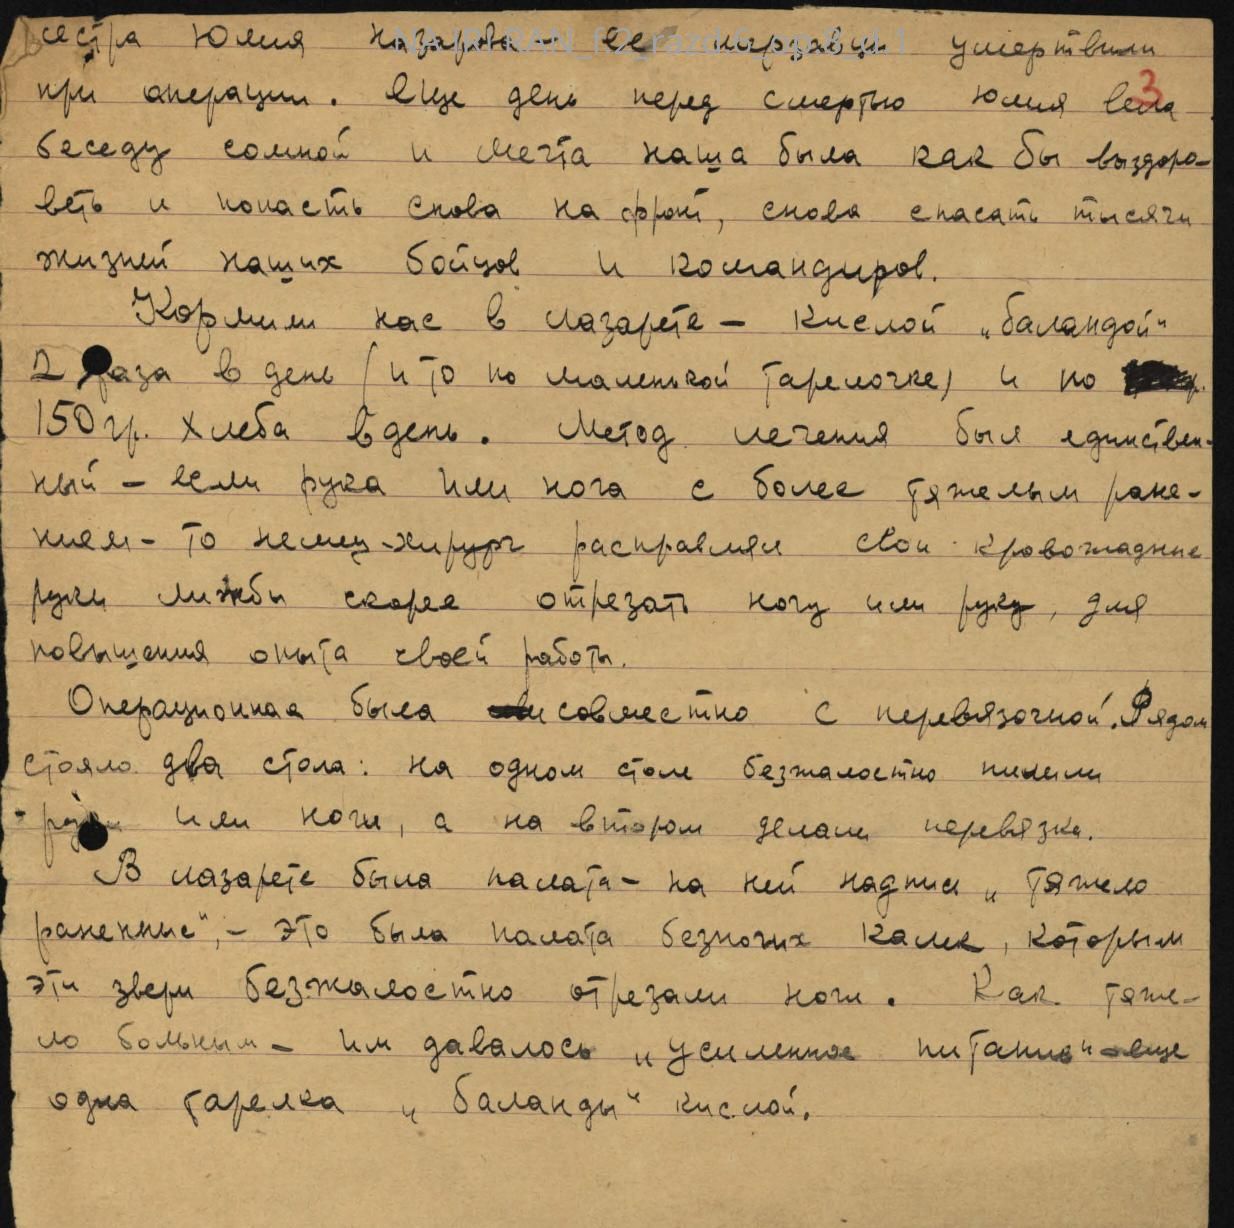 сестра Юлия Назарова – ее мерзавцы умертвили
при операции. Еще день перед смертью Юлия вела
3
беседу сомной и мечта наша была как бы выздора-
веть и попасть снова на фронт, снова спасать тысячи
жизней наших бойцов и командиров.
Кормили нас в лазарете – кислой „баландой“
2 раза в день (и то по маленькой тарелочке) и по
150 гр. хлеба в день. Метод лечения был единствен-
ный – если рука или нога с более тяжелым ране-
нием – то немец-хирург расправлял свои кровожадные
руки лижбы скорее отрезать ногу или руку, для
повышения опыта своей работы.
Операционная была совместно с перевязочной. Рядом
стояло два стола: на одном столе безжалостно пилили
руки или ноги, а на втором делали перевязки.
В лазарете была палата – на ней надписи „тяжело
раненные“, – это была палата безногих калек, которым
эти звери безжалостно отрезали ноги. Как тяже-
ло больным – им давалось „усиленное питание“ – еще
одна тарелка „баланды“ кислой.